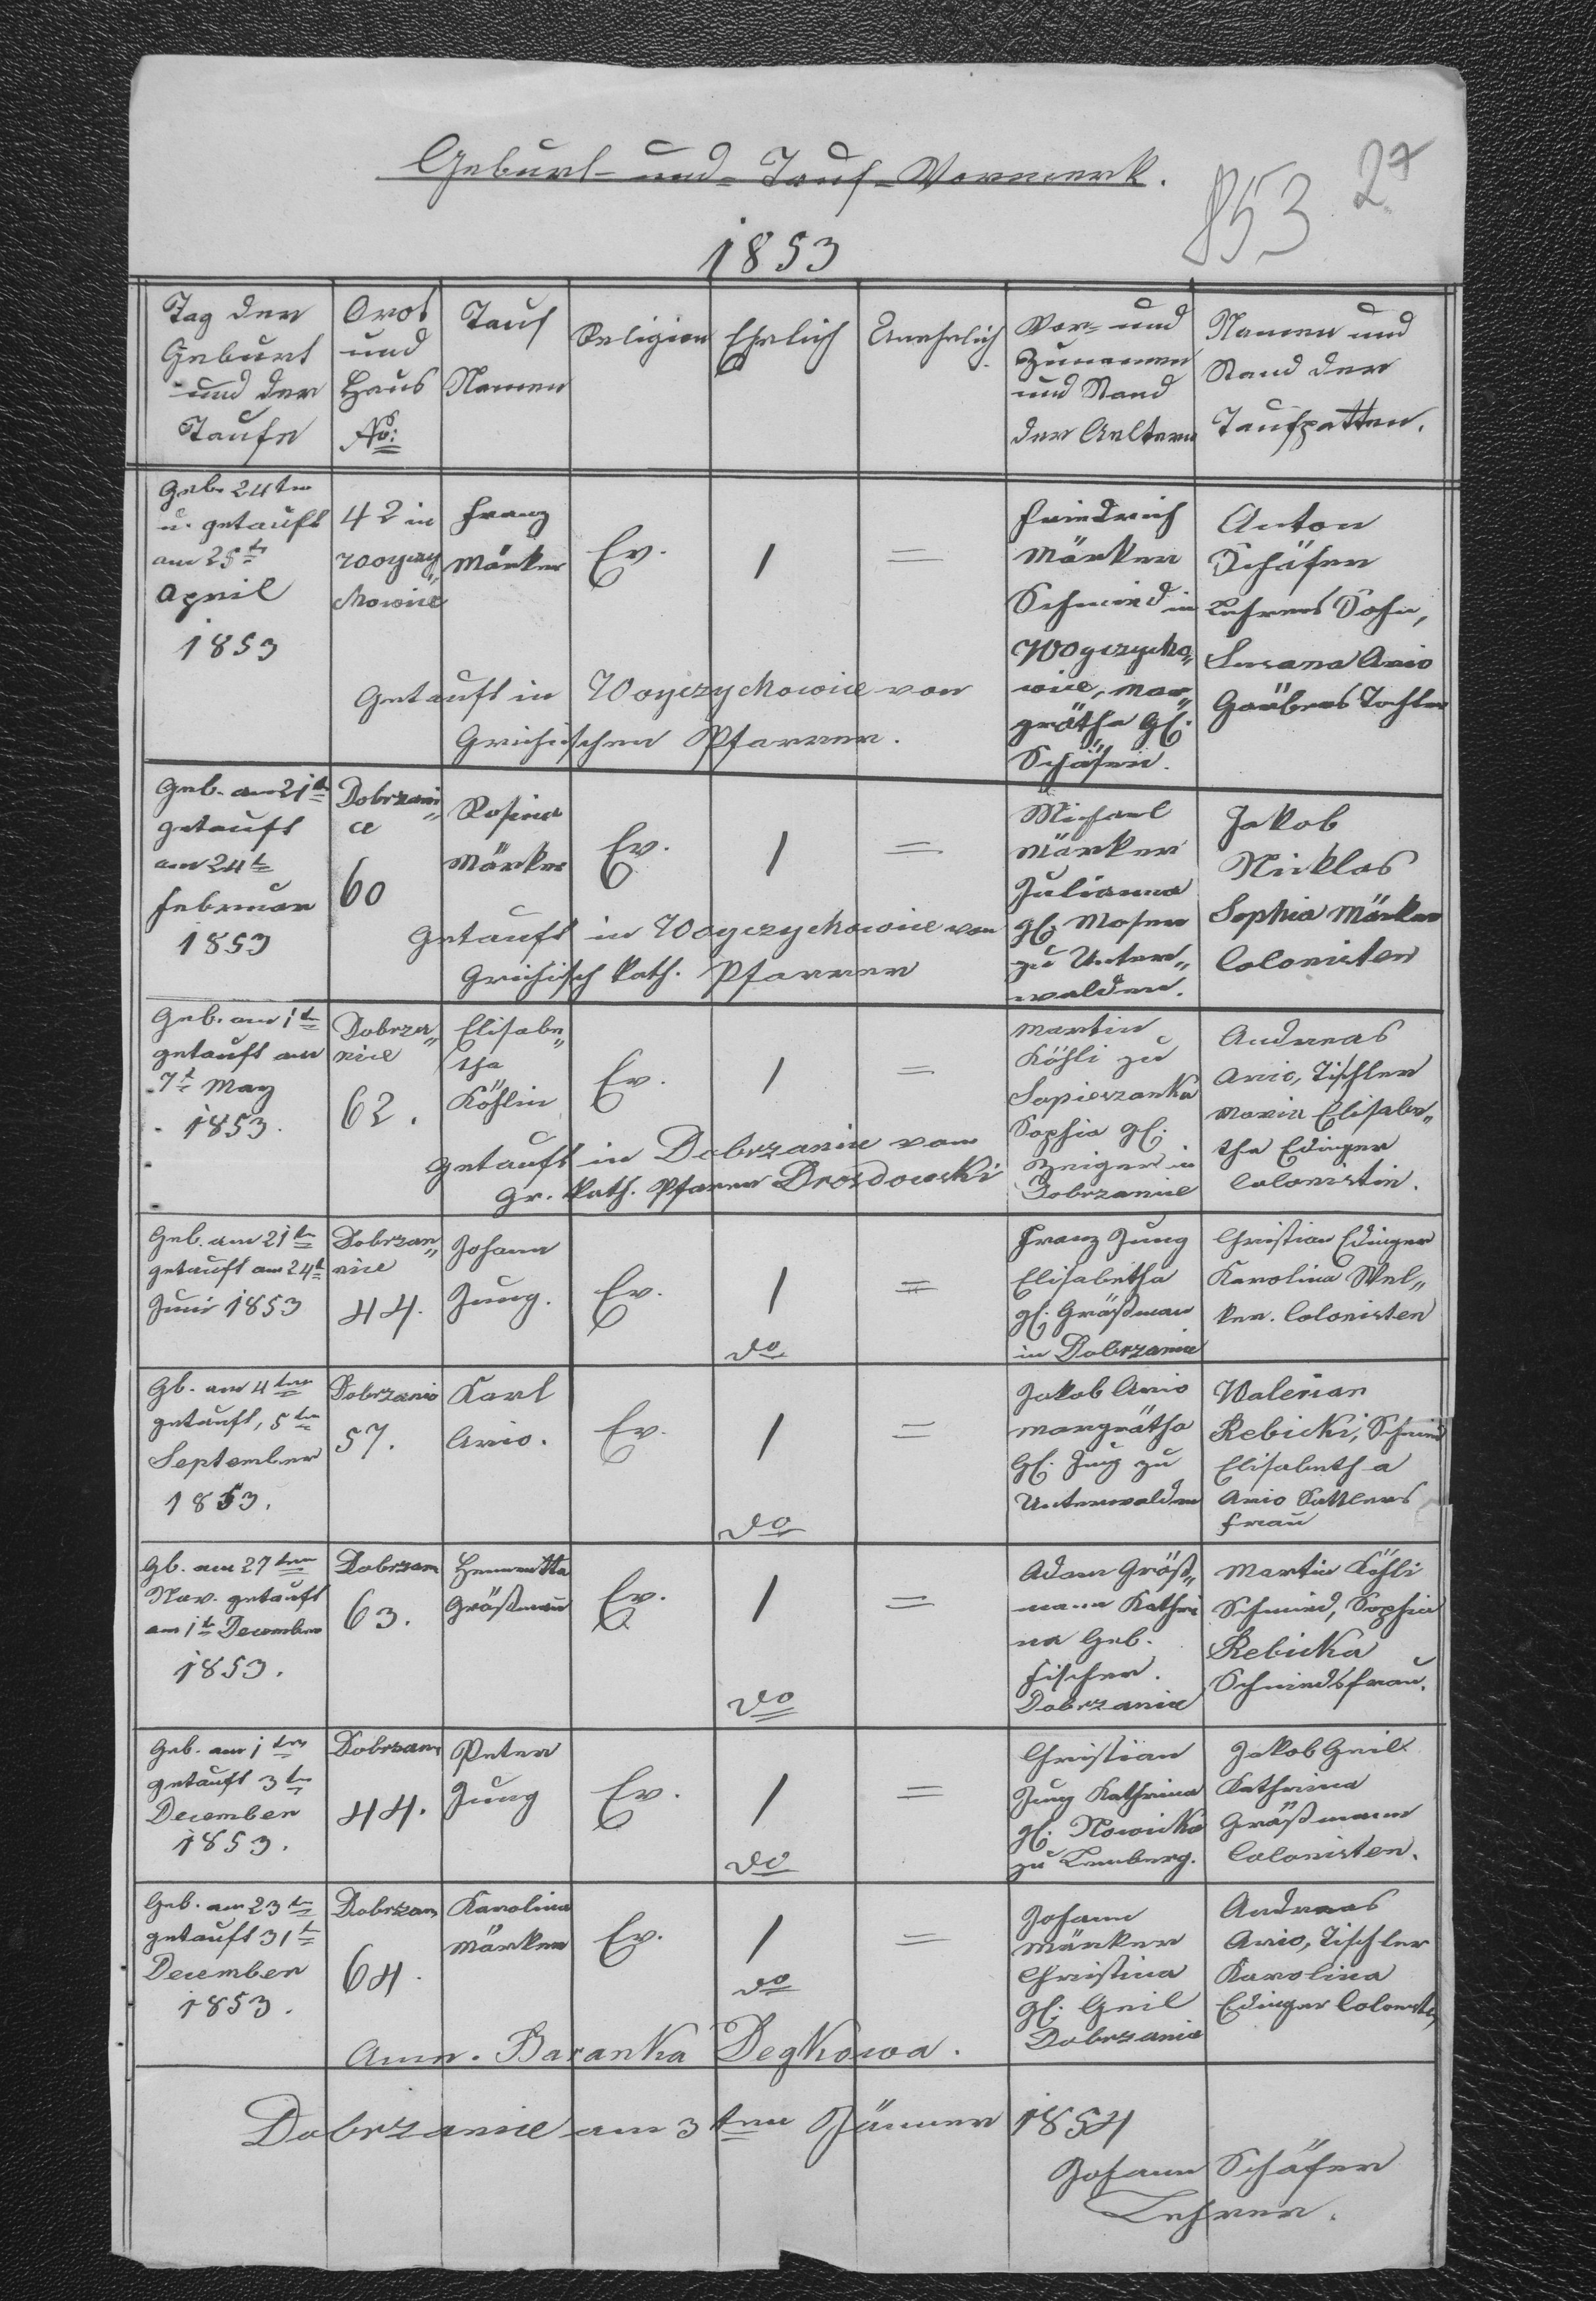 Geburt- und- Tauf-Vormerk.
853 27
1853
Tag der Geburt und der Taufe
Orot und Haus No:
Tauf Namen
Religion
Ehrlich
Unehrlich
Vor- und Zunamen und Stand der Aeltern
Namen und Stand der Taufpatten.
Geb. 24ten
u. getauft
am 25tn
April
1853
42 in
Woyczy„
chowice
Franz
Märker
Ev.
1
=
Friedrich
Märker
Schmied in
Woyczycho„
wice, Mar„
grätha gl.
Schäferi.
Anton
Schäfer
Lehrers Sohn,
Susana Ario
Gaübers Tochter
Getauft in Woyczychowice von
Grichischen Pfarrer.
Geb. am 21tn
getauft
am 24tn
Februar
1853
Dobrzani„
ce
60
Rosina
Märker
Ev.
1
=
Michael
Märker
Julianna
gl. Moser
zu Unter„
walden.
Jakob
Nicklas
Sophia Märker
Colonisten
Getauft in Woyczychowice von
Grichisch kath. Pfarrer
Geb. am 1tn
getauft am
7t May
1853.
Dobrza„
nice
62.
Elisabe„
tha
Köhlin
Ev.
1
=
Martin
Köhli zu
Sapieszanka
Sophia gl.
Zeiger in
Dobrzanice
Andreas
Ario, Tischler
Maria Elisabe„
tha Edinger
Colonistin.
Getauft in Dobrzanice vom
Gr. kath. Pfarrer Drosdowski
Geb. am 21tn
getauft am 24t
Juni 1853
Dobrzan„
nice
44.
Johann
Jung.
Ev.
1
do
=
Franz Jung
Elisabetha
gl. Gräßman
in Dobrzanice
Christian Edinger
Karolina Wel„
ker. Colonisten
Gb. am 4ten
getauft, 5ten
September
1853.
Dobrzanic
57.
Karl
Ario.
Ev.
1
do
=
Jakob Ario
Margrätha
Gl. Jung zu
Unterwalden
Walerian
Rebicki, Schmied
Elisabetha
Ario Sattlers
Frau
Gb. am 27ten
Nov. getauft
am 1tn December
1853.
Dobrzan
63.
Henrietta
Gräßman
Ev.
1
do
=
Adam Gräß„
mann Kathri
na Geb.
Fischer.
Dobrzanice
Martin Köhli
Schmied, Sophia
Rebicka
Schmiedsfrau.
Geb. am 1ten
getauft 3tn
December
1853.
Dobrzan
44.
Peter
Jung
Ev.
1
do
=
Christian
Jung Kathrina
gl. Nowicka
zu Lemberg.
Jakob Geil
Kathrina
Gräßmann
Colonisten.
Geb. am 23tn
getauft 31t
December
1853.
Dobrzan
64.
Karolina
Märker
Ev.
1
do
=
Johann
Märker
Christina
gl. Geil
Dobrzanice
Andreas
Ario, Tischler
Karolina
Edinger Colonisten
Amn. Baranka Degkowa.
Dobrzanice am 3ten Jänner 1854
Johann Schäfer
Lehrer.